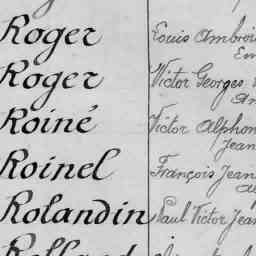 Roger Louis Ambroi
Roger Victor Georges
Roiné Victor Alphon
Jean
Roinel François Jean
Rolandin Paul Victor Jea